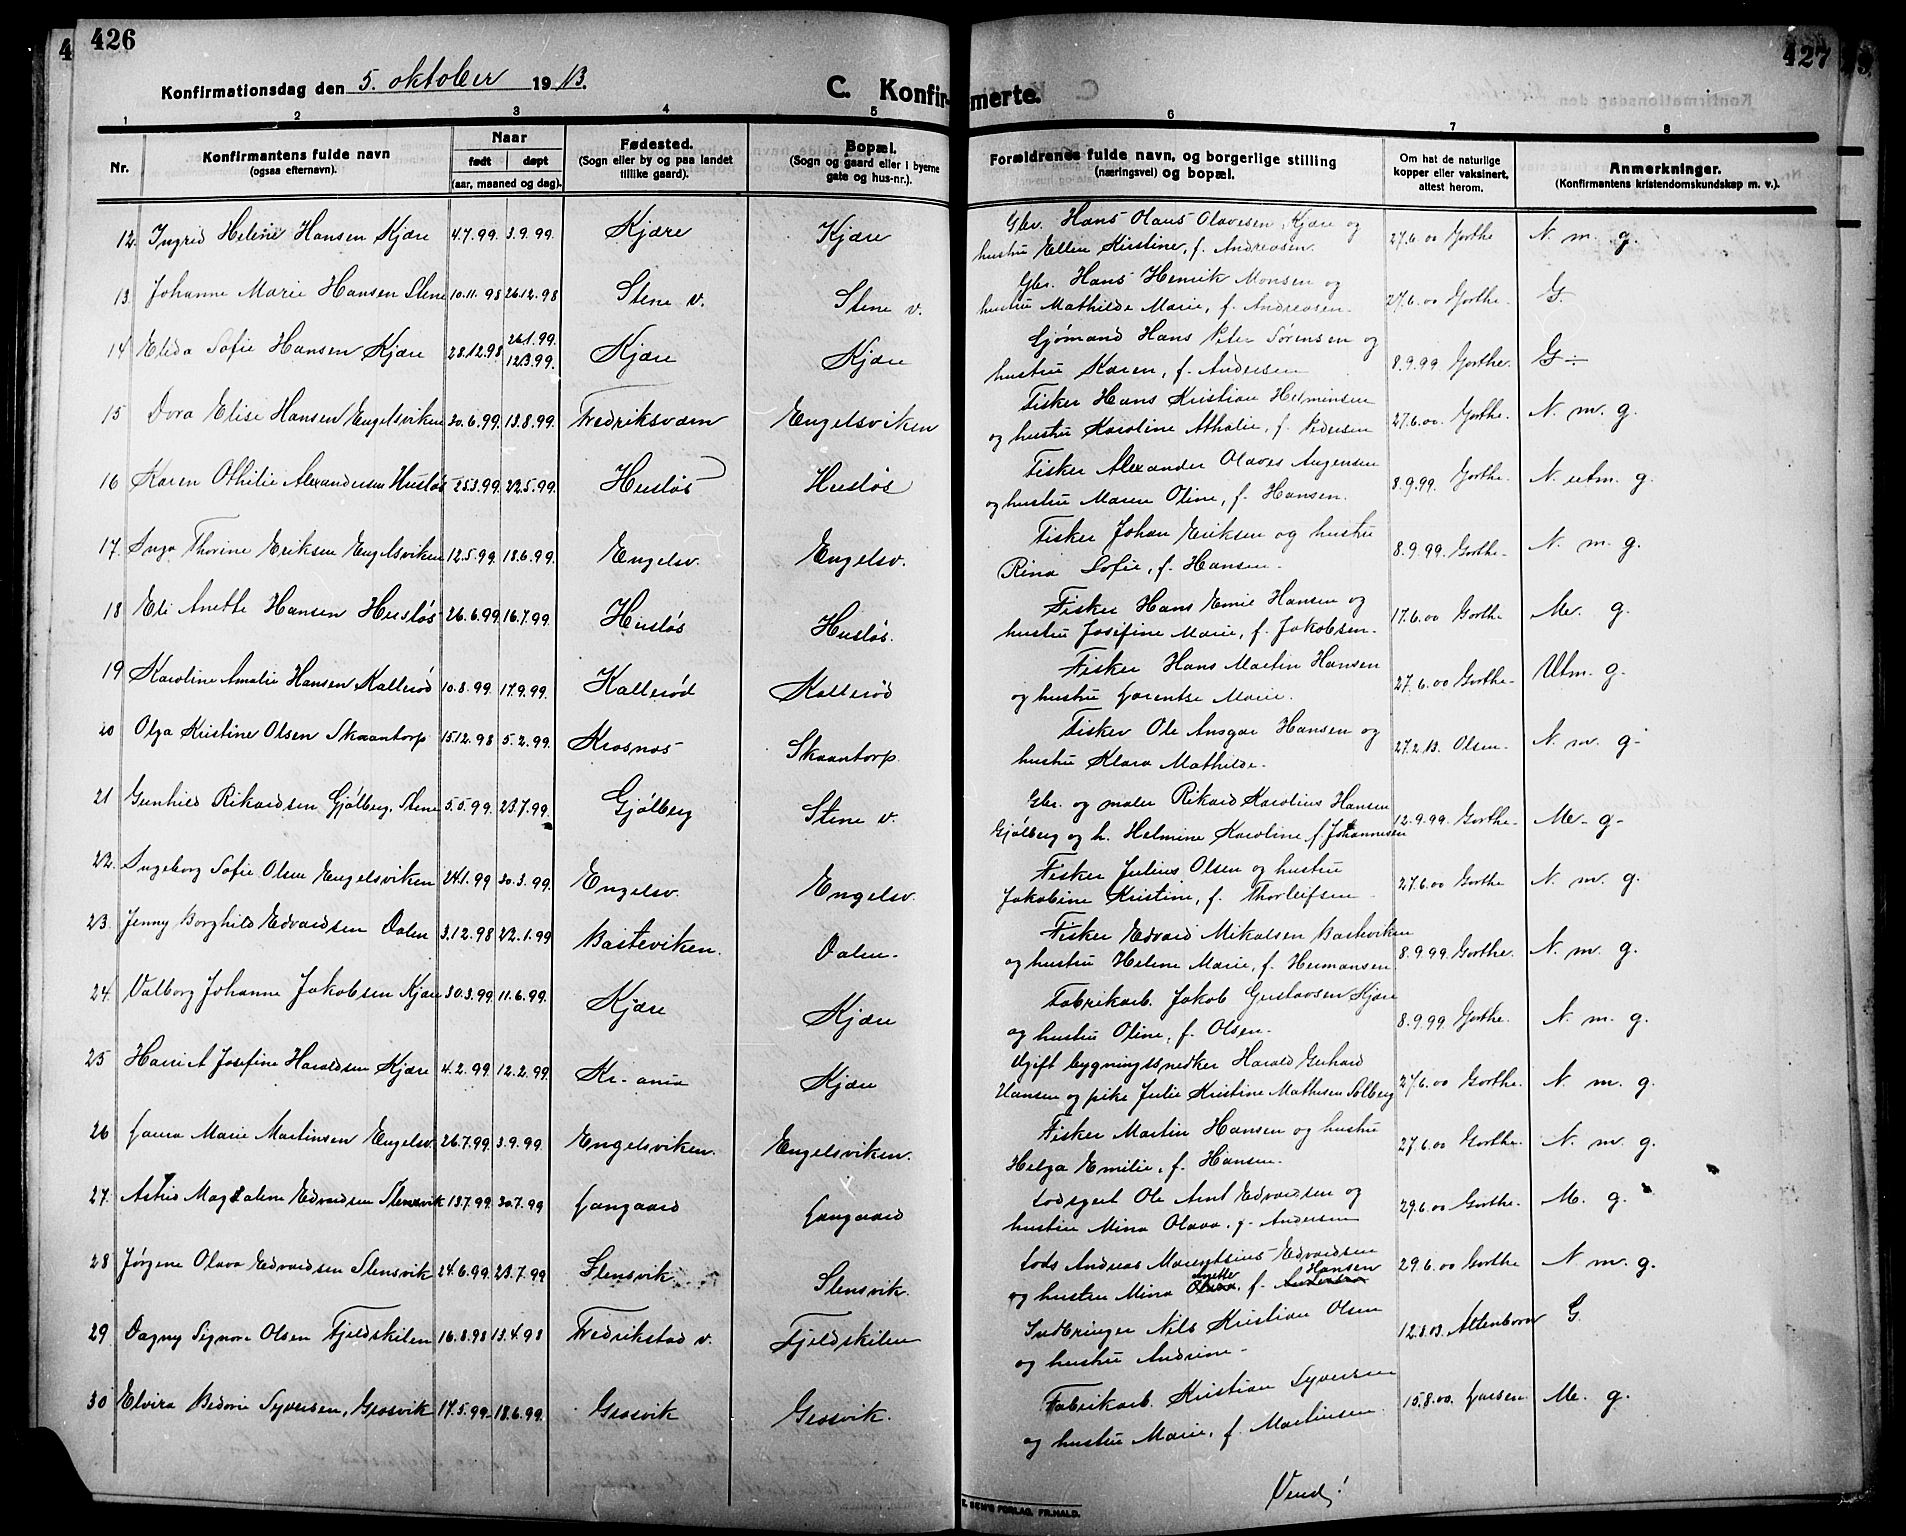 426
427
Konfirmationsdag den 5. oktober 1913.
C. Konfirmerte.
1 2 3 4 5 6 7 8
Nr.
Konfirmantens fulde navn
(ogsaa efternavn).
Naar
født døpt
(aar, maaned og dag).
Fødested.
(Sogn eller by og paa landet
tillike gaard).
Bopæl.
(Sogn og gaard eller i byerne
gate og hus-nr.).
Forældrenes fulde navn, og borgerlige stilling
(næringsvei) og bopæl.
Om hat de naturlige
kopper eller vaksinert,
attest herom.
Anmerkninger.
(Konfirmantens kristendomskundskap m. v.).
12. Ingrid Helene Hansen Kjære 4.7.99. 3.9.99. Kjære Kjære Gbr. Hans Olaus Olavesen, Kjære og
hustru Ellen Kirstine, f. Andreasen. 27.6.00 Gorthe N. m. g.
13. Johanne Marie Hansen Stene 10.11.98 26.12.98 Stene v. Stene v. Gbr. Hans Henrik Monsen og
hustru Mathilde Marie, f. Andreasen. 27.6.00 Gorthe. G.
14 Elida Sofie Hansen Kjære 28.12.98 26.1.99.
12.3.99. Kjære Kjære Sjømand Hans Peter Sørensen og
hustru Karen, f. Andersen 8.9.99 Gorthe. G ÷
15 Dora Elise Hansen Engelsviken 30.6.99. 13.8.99. Fredriksværn Engelsviken Fisker Hans Kristian Helminsen
og hustru Karoline Athalie, f. Pedersen 27.6.00. Gorthe. N. m. g.
16 Karen Othilie Alexandersen Husløs 25.3.99. 22.5.99. Husløs Husløs Fisker Alexander Olaves Augensen
og hustru Maren Oline, f. Hansen. 8.9.99. Gorthe. N. utm. g.
17. Inga Thorine Eriksen Engelsviken 12.5.99. 18.6.99. Engelsv. Engelsv. Fisker Johan Eriksen og hustru
Rina Sofie, f. Hansen. 8.9.99. Gorthe. N. m. g.
18 Eli Anette Hansen Husløs 26.6.99. 16.7.99. Husløs Husløs. Fisker Hans Emil Hansen og
hustru Josefine Marie, f. Jakobsen. 17.6.00 Gorthe Me. g.
19 Karoline Amalie Hansen Kallerød 10.8.99. 17.9.99. Kallerød Kallerød Fisker Hans Martin Hansen
og hustru Larentse Marie. 27.6.00 Gorthe. Utm. g.
20 Olga Kristine Olsen Skaantorp 15.12.98 5.2.99. Krosnes Skaantorp. Fisker Ole Ansgar Hansen og
hustru Klara Mathilde. 27.2.13. Olsen. N. m. g.
21 Gunhild Rikardsen Gjølberg, Stene 5.5.99. 23.7.99. Gjølberg Stene v. Gbr. og maler Rikard Karolius Hansen
Gjølberg og h. Helmine Karoline f. Johannesen 12.9.99. Gorthe. Me. g.
22. Ingeborg Sofie Olsen Engelsviken 24.1.99 30.3.99. Engelsv. Engelsv. Fisker Julius Olsen og hustru
Jakobine Kristine, f. Thorleifsen 27.6.00 Gorthe N. m. g.
23. Jenny Borghild Edvardsen Dalen 3.12.98 22.1.99 Basteviken. Dalen. Fisker Edvard Mikalsen Basteviken
og hustru Helene Marie, f. Hermansen 8.9.99. Gorthe. N. m. g.
24. Valborg Johanne Jakobsen Kjære 30.3.99. 11.6.99. Kjære Kjære Fabrikarb. Jakob Gustavsen Kjære
og hustru Oline, f. Olsen. 8.9.99. Gorthe. N. m. g.
25 Harriet Josefine Haraldsen Kjære 4.2.99. 12.2.99. Kr.-ania Kjære Ugift bygningssnedker Harald Gerhard
Hansen og pike Julie Kristine Mathisen Solberg 27.6.00 Gorthe. N. m. g.
26 Laura Marie Martinsen Engelsv. 26.7.99. 3.9.99. Engelsviken. Engelsviken. Fisker Martin Hansen og hustru
Helga Emilie, f. Hansen. 27.6.00 Gorthe. N. m. g.
27. Astrid Magdalene Edvardsen Slensvik 13.7.99. 30.7.99 Langaard Langaard Lodsgut Ole Arnt Edvardsen og
hustru Mina Olava, f. Andersen 29.6.00 Gorthe. M. g.
28 Jørgine Olava Edvardsen Slensvik 24.6.99. 23.7.99 Slensvik Slensvik. Lods Andreas Marentsius Edvardsen
og hustru Mina Anette, f. Hansen 29.6.00 Gorthe N. m. g.
29 Dagny Signora Olsen Fjeldskilen 16.3.98 13.4.98 Fredrikstad v. Fjeldskilen Indbringer Nils Kristian Olsen
og hustru Andrine. 12.3.03. Altenborn G.
30 Elvira Bedorie Syversen, Grosvik 17.5.99. 18.6.99. Grosvik Grosvik. Fabrikarb. Kristian Syversen
og hustru Marie, f. Martinsen. 15.8.00. Larsen Me. g.
Vend!
FORLAG, FR.HALD.